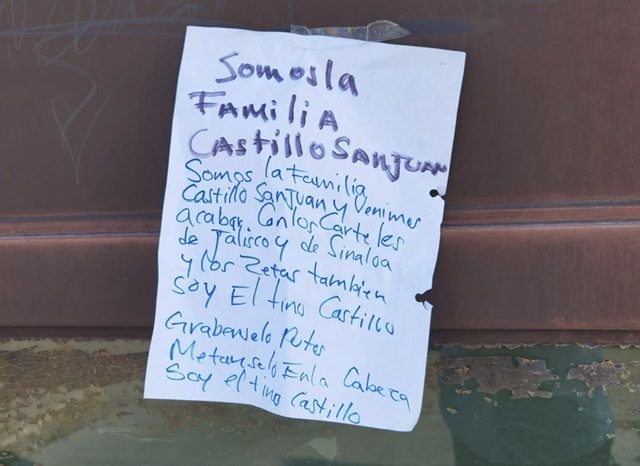 Somos la
FAMiliA
CAstillo SANJUAN
Somos la Familia
Castillo SanJuan y Venimos
acabar Con los Carteles
de Jalisco y de Sinaloa
y los Zetas tambien
Soy El tino Castillo
Grabenselo Putos
Metanselo En la Cabeza
Soy el tino Castillo